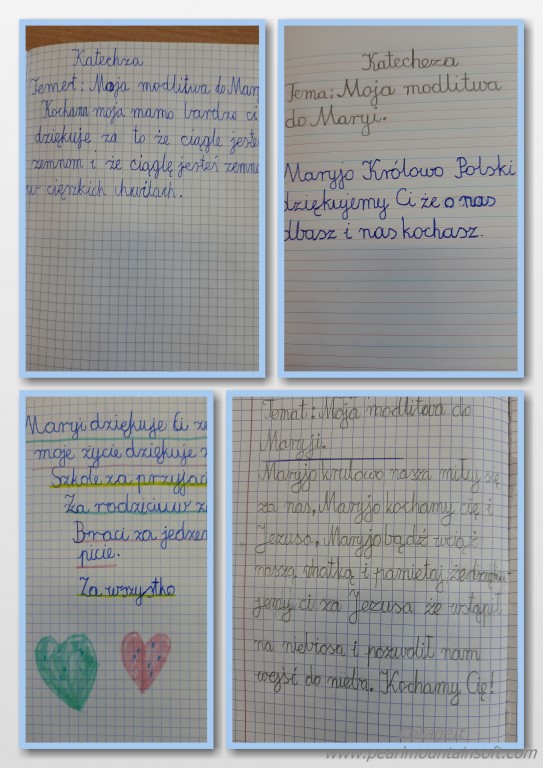 Katechza
Temet: Moja modlitwa do Mary
Kochana moja mamo bardzo ci
dziękuje za to że ciągle jesteś
zemnom i że ciągle jesteś zemno
w cięszkich chwilach.
Katecheza
Tema: Moja modlitwa
do Maryi.
Maryjo Królowo Polski
dziękujemy Ci że o nas
dbasz i nas kochasz.
Maryi dziękuje Ci za
moje życie dziękuje z
Szkole za przyjaci
Za rodziciuw za
Braci za jedzen
picie.
Za wszystko
Temat: Moja modlitwa do
Maryji.
Maryjo krulowo nasza
za nas, Maryjo kochamy cię i
Jezusa, Maryjo bądź wciąż
naszą matką i pamiętaj że dzięku-
jemy ci za Jezusa że wstąpił
na niebiosa i pozwolił nam
wejść do nieba. Kochamy Cię!
www.pearlmountainsoft.com